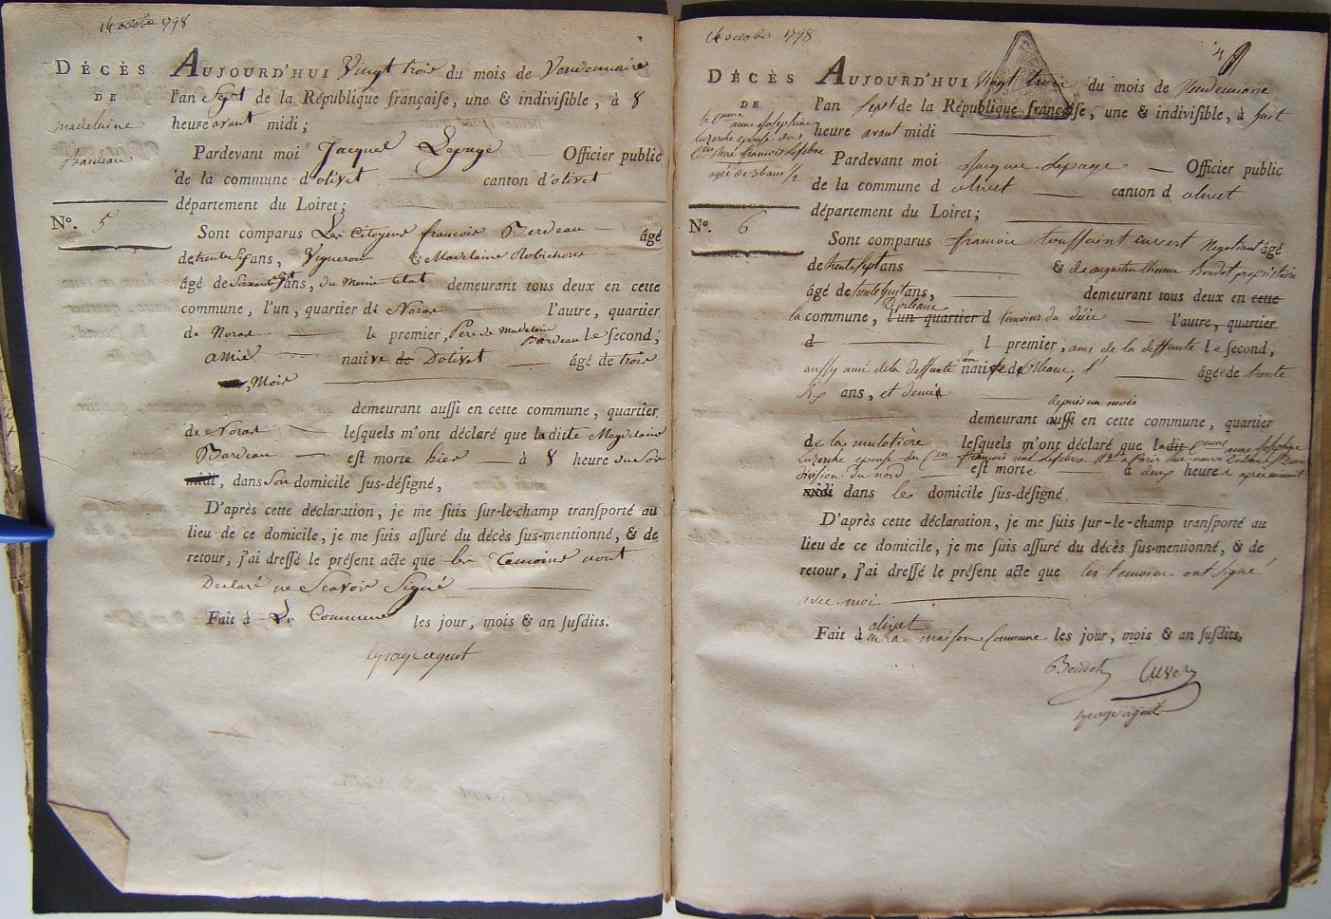 14 octobre 1798
DÉCÈS
DE
Madeleine
Bardeau
N°. 5
AUJOURD'HUI Vingt trois du mois de Vendemiaire
l'an Sept de la République françaiſe, une & indiviſible, à 8
heure avant midi ;
Pardevant moi Jacque Lepage Officier public
de la commune d'olivet canton d'olivet
département du Loiret ;
Sont comparus Les Citoyens francois Berdeau âgé
de trente ans, Vigneron & Madelaine Robichon
âgé de ans, du Meme Etat demeurant tous deux en cette
commune, l'un, quartier de Noras l'autre, quartier
de Noras le premier, Pere de Madelaine Bardeau le ſecond ;
amie native Dolivet âgé de trois
Mois
demeurant auſſi en cette commune, quartier
de Noras leſquels m'ont déclaré que ladite Magdelaine
Bardeau eſt morte hier à 8 heure du Soir
midi, dans Son domicile ſus-déſigné,
D'après cette déclaration, je me ſuis ſur-le-champ tranſporté au
lieu de ce domicile, je me ſuis aſſuré du décès ſus-mentionné, & de
retour, j'ai dreſſé le préſent acte que les Temoins ont
Declaré ne Scavoir Signé
Fait à La Commune les jour, mois & an ſuſdits.
Lepage agent
14 octobre 1798
4
DÉCÈS
DE
anne Josephine
Luzarche épouse du
Cen René francois Lefebre
agée de 36 ans 1/2
N°. 6
AUJOURD'HUI Vingt trois du mois de Vendemiaire
l'an Sept de la République françaiſe, une & indiviſible, à huit
heure avant midi
Pardevant moi Jacque Lepage Officier public
de la commune d olivet canton d olivet
département du Loiret ;
Sont comparus francois toussaint Cuvert Negotiant âgé
de trente Sept ans & de augustin Boudet propriétaire
âgé de trente huit ans, demeurant tous deux en cette
la commune, l'un quartier d'orleans temoins du décès l'autre, quartier
d l premier, ami de la deffunte le ſecond,
aussy ami de la deffunte native d'orleans, âgée de trente
Six ans, et demie
depuis un mois
demeurant auſſi en cette commune, quartier
de la mulotière leſquels m'ont déclaré que ladit anne Josephine
Luzarche epouse du Cen francois rené Lefebre
division du nord eſt morte à deux heures après midi
midi dans le domicile ſus-déſigné
D'après cette déclaration, je me ſuis ſur-le-champ tranſporté au
lieu de ce domicile, je me ſuis aſſuré du décès ſus-mentionné, & de
retour, j'ai dreſſé le préſent acte que les temoins ont signé
avec moi
Fait à olivet en la maison Commune les jour, mois & an ſuſdits.
Boudet Cuvert
Lepage agent